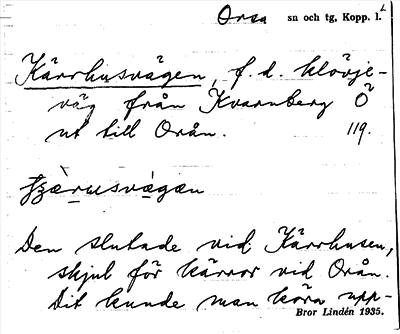 Orsa sn och tg, Kopp. l.
Kärrhusvägen, f.d. klövje-
väg från Kvarnberg Ö
ut till Orån. 119.
Den slutade vid Kärrhusen,
skjul för kärror vid Orån.
Dit kunde man köra upp-
Bror Lindén 1935.